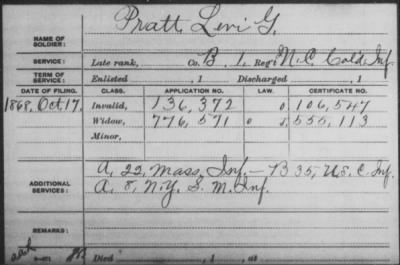 NAME OF SOLDIER: Pratt, Levi G.
SERVICE: Late rank, Co. B, 1, Reg't N.C. Cold. Inf.
TERM OF SERVICE: Enlisted , 1 Discharged , 1
DATE OF FILING. CLASS. APPLICATION NO. LAW. CERTIFICATE NO.
1868, Oct. 17. Invalid, 136,372 O. 106,547
Widow, 776,571 555,113
Minor,
ADDITIONAL SERVICES: A, 22, Mass. Inf. - B 35, U.S.C. Inf.
A. 8, N.Y. S. M. Inf.
REMARKS:
Died , 1 , at